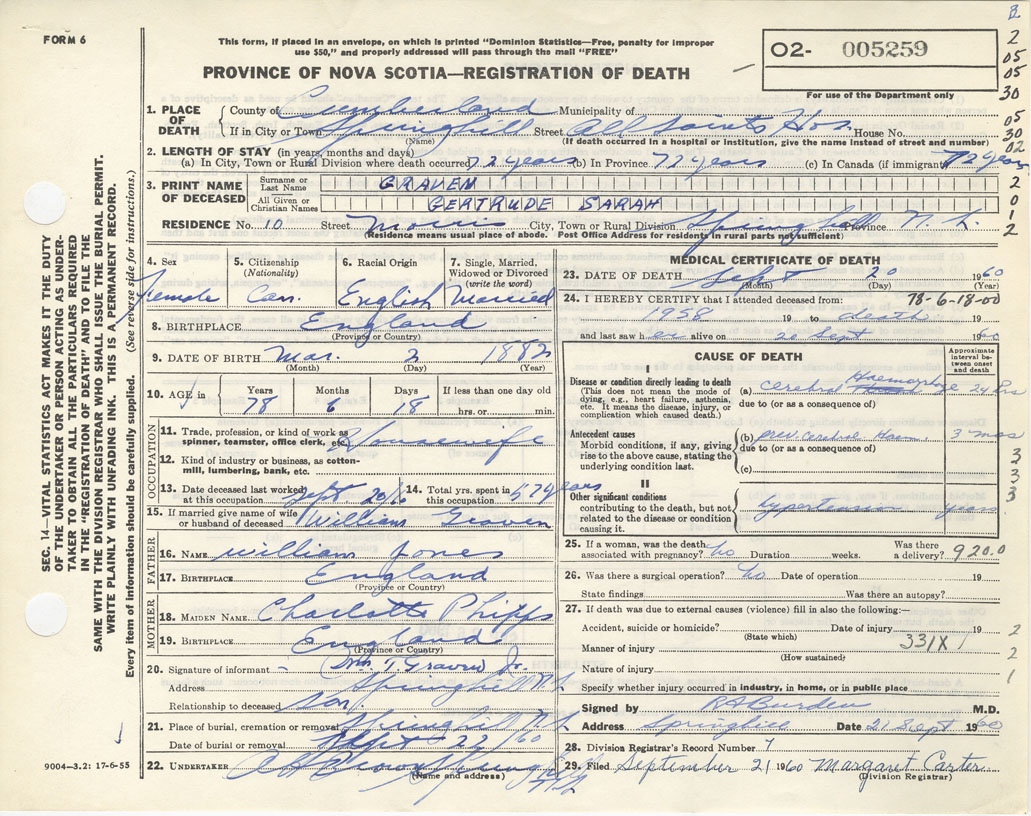 FORM 6
This form, if placed in an envelope, on which is printed "Dominion Statistics—Free, penalty for improper
use $50," and properly addressed will pass through the mail "FREE"
PROVINCE OF NOVA SCOTIA—REGISTRATION OF DEATH
02- 005259
For use of the Department only
2
05
05
30
05
30
02
2
0
1
2
SEC. 14—VITAL STATISTICS ACT MAKES IT THE DUTY
OF THE UNDERTAKER OR PERSON ACTING AS UNDER-
TAKER TO OBTAIN ALL THE PARTICULARS REQUIRED
IN THE "REGISTRATION OF DEATH" AND TO FILE THE
SAME WITH THE DIVISION REGISTRAR WHO SHALL ISSUE THE BURIAL PERMIT.
WRITE PLAINLY WITH UNFADING INK. THIS IS A PERMANENT RECORD.
Every item of information should be carefully supplied. (See reverse side for instructions.)
1. PLACE OF DEATH { County of Cumberland Municipality of
If in City or Town Springhill Street All Saints Hos. House No.
(Name) (If death occurred in a hospital or institution, give the name instead of street and number)
2. LENGTH OF STAY (in years, months and days)
(a) In City, Town or Rural Division where death occurred 72 years (b) In Province 72 years (c) In Canada (if immigrant) 72 years
3. PRINT NAME OF DECEASED { Surname or Last Name GRAVEN
All Given or Christian Names GERTRUDE SARAH
RESIDENCE No. 10 Street Morris City, Town or Rural Division Springhill Province N.S.
(Residence means usual place of abode. Post Office Address for residents in rural parts not sufficient)
4. Sex Female
5. Citizenship (Nationality) Can.
6. Racial Origin English
7. Single, Married, Widowed or Divorced (write the word) Married
8. BIRTHPLACE England
(Province or Country)
9. DATE OF BIRTH Mar. 2 1882
(Month) (Day) (Year)
10. AGE in Years 78 Months 6 Days 18 If less than one day old hrs. or min.
OCCUPATION
11. Trade, profession, or kind of work as spinner, teamster, office clerk, etc. Housewife
12. Kind of industry or business, as cotton-mill, lumbering, bank, etc.
13. Date deceased last worked at this occupation Sept 20/60 14. Total yrs. spent in this occupation 57 years
15. If married give name of wife or husband of deceased William Graven
FATHER
16. NAME William Jones
17. BIRTHPLACE England
(Province or Country)
MOTHER
18. MAIDEN NAME Charlotte Phipps
19. BIRTHPLACE England
(Province or Country)
20. Signature of informant Graven Jr.
Address Springhill N.S.
Relationship to deceased Son
21. Place of burial, cremation or removal Springhill N.S.
Date of burial or removal Sept 22/60
22. UNDERTAKER Brown Springhill
(Name and address) N.S.
9004—3.2: 17-6-55
MEDICAL CERTIFICATE OF DEATH
23. DATE OF DEATH Sept 20 1960
(Month) (Day) (Year)
24. I HEREBY CERTIFY that I attended deceased from: 78-6-18-00
1958 19 to death 19
and last saw h er alive on 20 Sept 1960
CAUSE OF DEATH
Approximate interval between onset and death
I
Disease or condition directly leading to death
(This does not mean the mode of dying, e.g., heart failure, asthenia, etc. It means the disease, injury, or complication which caused death.)
(a) cerebral Haemorrhage 24 hrs
due to (or as a consequence of)
Antecedent causes
Morbid conditions, if any, giving rise to the above cause, stating the underlying condition last.
(b) prev cerebral Haem 3 mos
due to (or as a consequence of)
(c)
3
3
3
3
II
Other significant conditions
contributing to the death, but not related to the disease or condition causing it.
hypertension years
25. If a woman, was the death associated with pregnancy? no Duration weeks. Was there a delivery? 920.0
26. Was there a surgical operation? no Date of operation 19
State findings Was there an autopsy?
27. If death was due to external causes (violence) fill in also the following:—
Accident, suicide or homicide? Date of injury 19
(State which)
Manner of injury 331X
(How sustained)
Nature of injury
2
2
1
Specify whether injury occurred in industry, in home, or in public place
Signed by Burden M.D.
Address Springhill Date 21 Sept 1960
28. Division Registrar's Record Number 7
29. Filed September 21 1960 Margaret Carter
(Division Registrar)